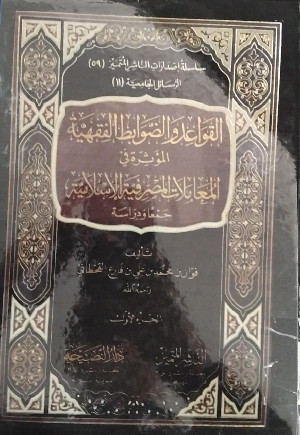 سلسلة إصدارات الناشر المتميز (٥٩)
الرسائل الجامعية (١١)
القواعد والضوابط الفقهية
المؤثرة في
المعاملات المصرفية الإسلامية
جمعاً ودراسة
تأليف
فواز بن محمد بن علي بن القحطاني
رحمه الله
الجزء الأول
الناشر المتميز
دار النصيحة